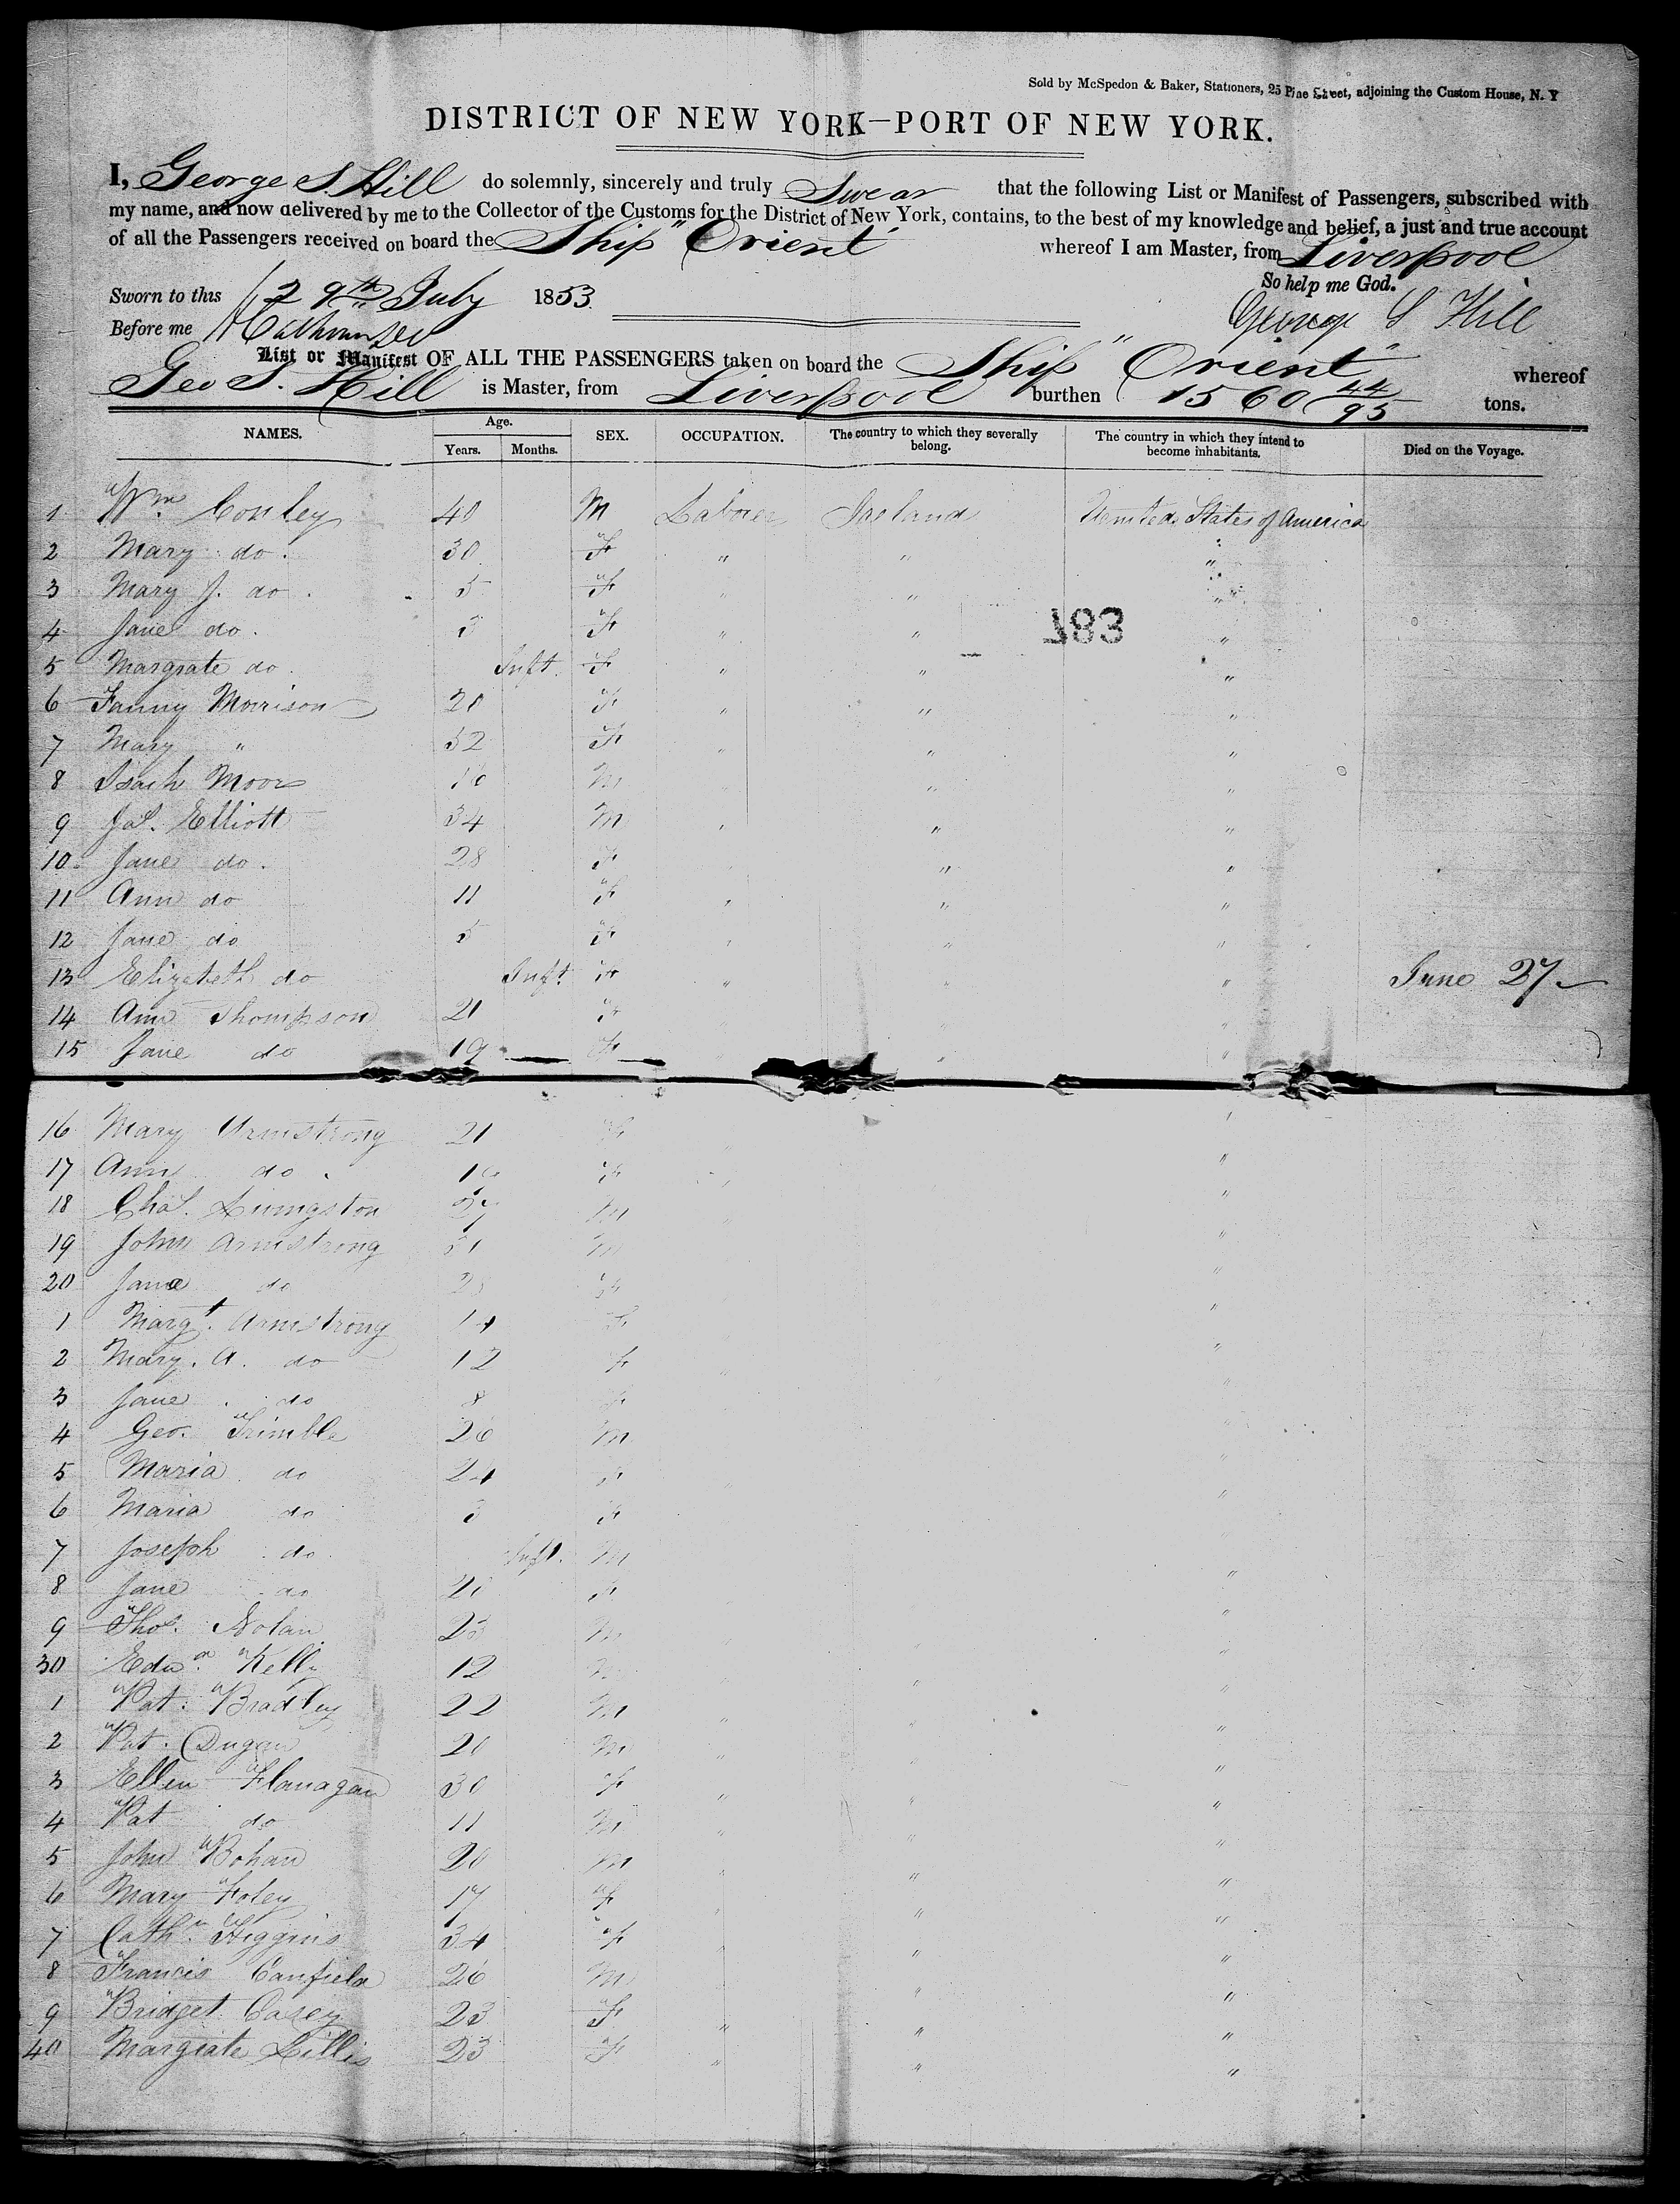 Sold by McSpedon & Baker, Stationers, 25 Pine Street, adjoining the Custom House, N. Y
DISTRICT OF NEW YORK—PORT OF NEW YORK.
I, George S. Hill do solemnly, sincerely and truly Swear that the following List or Manifest of Passengers, subscribed with
my name, and now delivered by me to the Collector of the Customs for the District of New York, contains, to the best of my knowledge and belief, a just and true account
of all the Passengers received on board the Ship "Orient" whereof I am Master, from Liverpool
So help me God.
Sworn to this 29th July 1853
George S Hill
Before me
List or Manifest OF ALL THE PASSENGERS taken on board the Ship "Orient" whereof
Geo S. Hill is Master, from Liverpool burthen 1560 44/95 tons.
NAMES. Age. Years. Months. SEX. OCCUPATION. The country to which they severally belong. The country in which they intend to become inhabitants. Died on the Voyage.
1 Wm. Conley 40 M Laborer Ireland United States of America
2 Mary do. 30 F " " "
3 Mary J. do. 5 F " " "
783
4 Jane do. 3 F " " "
5 Margrate do Inft. F " " "
6 Fanny Morrison 20 F " " "
7 Mary " 32 F " " "
8 Isach Moor M " "
9 Jas. Elliott 34 M " " "
10 Jane do. 28 F " "
11 Ann do 11 F " " "
12 Jane do 5 F " " "
13 Elizabeth do Inft F " " " June 27
14 Ann Thompson 21 F " "
15 Jane do 19 F " "
16 Mary Armstrong 21 F "
17 Ann do. F "
18 Chas. Livingston M "
19 John Armstrong M "
20 Jane do F "
1 Margt. Armstrong 14 F "
2 Mary. A. do 12 F "
3 Jane do 8 F "
4 Geo. Trimble 26 M "
5 Maria do 24 F "
6 Maria do 3 F "
7 Joseph do Inft. M "
8 Jane do F "
9 Thos. Nolan 23 M "
30 Edwd. Kelly 12 M "
1 Pat. Bradley 22 M " " "
2 Pat. Dugan 20 M " " "
3 Ellen Flanagan 30 F " " "
4 Pat do 11 M " " "
5 John Bohan 20 M " " "
6 Mary Foley 17 F " " "
7 Cathn. Higgins 34 F " " "
8 Francis Canfield 26 M " "
9 Bridget Casey 23 F " " "
40 Margrate Lillis 23 F " " "